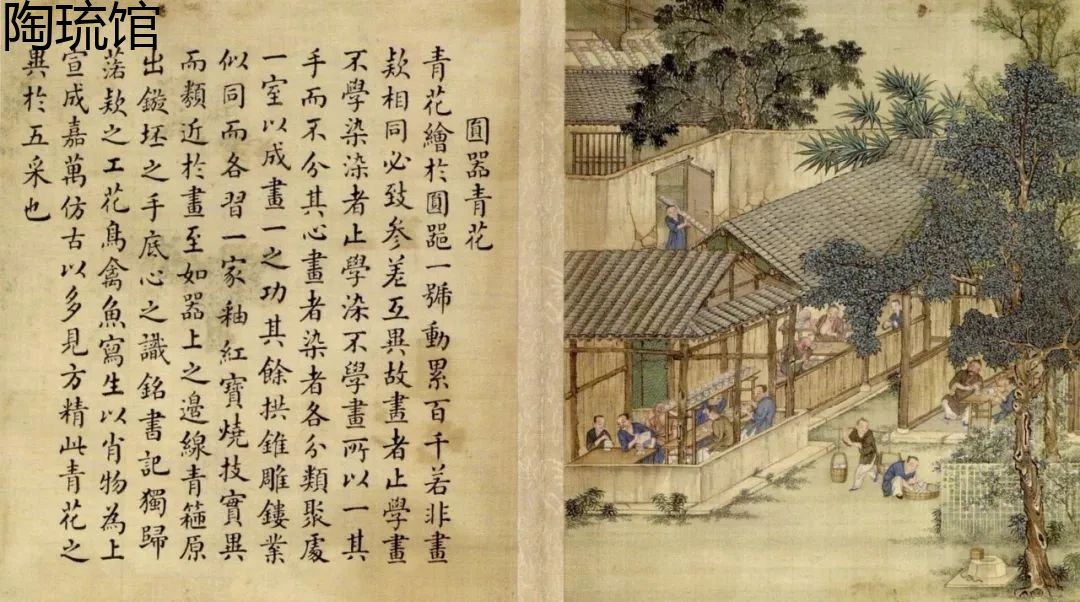 陶琉馆
圓器青花
青花繪於圓器一號動累百千若非畫
款相同必致參差互異故畫者止學畫
不學染染者止學染不學畫所以一其
手而不分其心畫者染者各分類聚處
一室以成畫一之功其餘拱錐雕鏤業
似同而各習一家釉紅寶燒技實異
而類近於畫至如器上之邊線青箍原
出鏇坯之手底心之識銘書記獨歸
落款之工花鳥禽魚寫生以肖物為上
宣成嘉萬仿古以多見方精此青花之
異於五采也